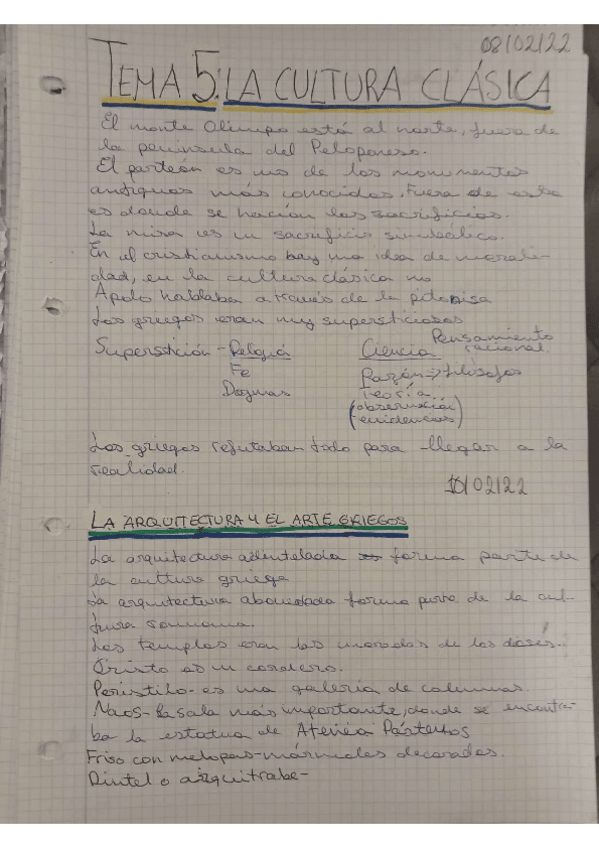 08/02/22
TEMA 5: LA CULTURA CLÁSICA
El monte Olimpo está al norte, fuera de
la península del Peloponeso.
El parteón es uno de los monumentos
antiguos más conocidos. Fuera de este
es donde se hacían los sacrificios.
La misa es un sacrificio simbólico.
En el cristianismo hay una idea de morali-
dad, en la cultura clásica no
Apolo hablaba a través de la pitonisa
Los griegos eran muy supersticiosos
Pensamiento
Superstición - Religió Ciencia racional.
Fe Razón => filósofos
Dogmas Teoría
(observación
evidencias)
Los griegos refutaban todo para llegar a la
realidad.
10/02/22
LA ARQUITECTURA Y EL ARTE GRIEGOS
La arquitectura adintelada forma parte de
la cultura griega
La arquitectura abovedada forma parte de la cul-
tura romana.
Los templos eran las moradas de los dioses.
Cristo es un cordero.
Peristilo- es una galería de columnas.
Naos- la sala más importante, donde se encontra-
ba la estatua de Atenea Pártenos
Friso con metopas-mármoles decorados.
Dintel o arquitrabe-